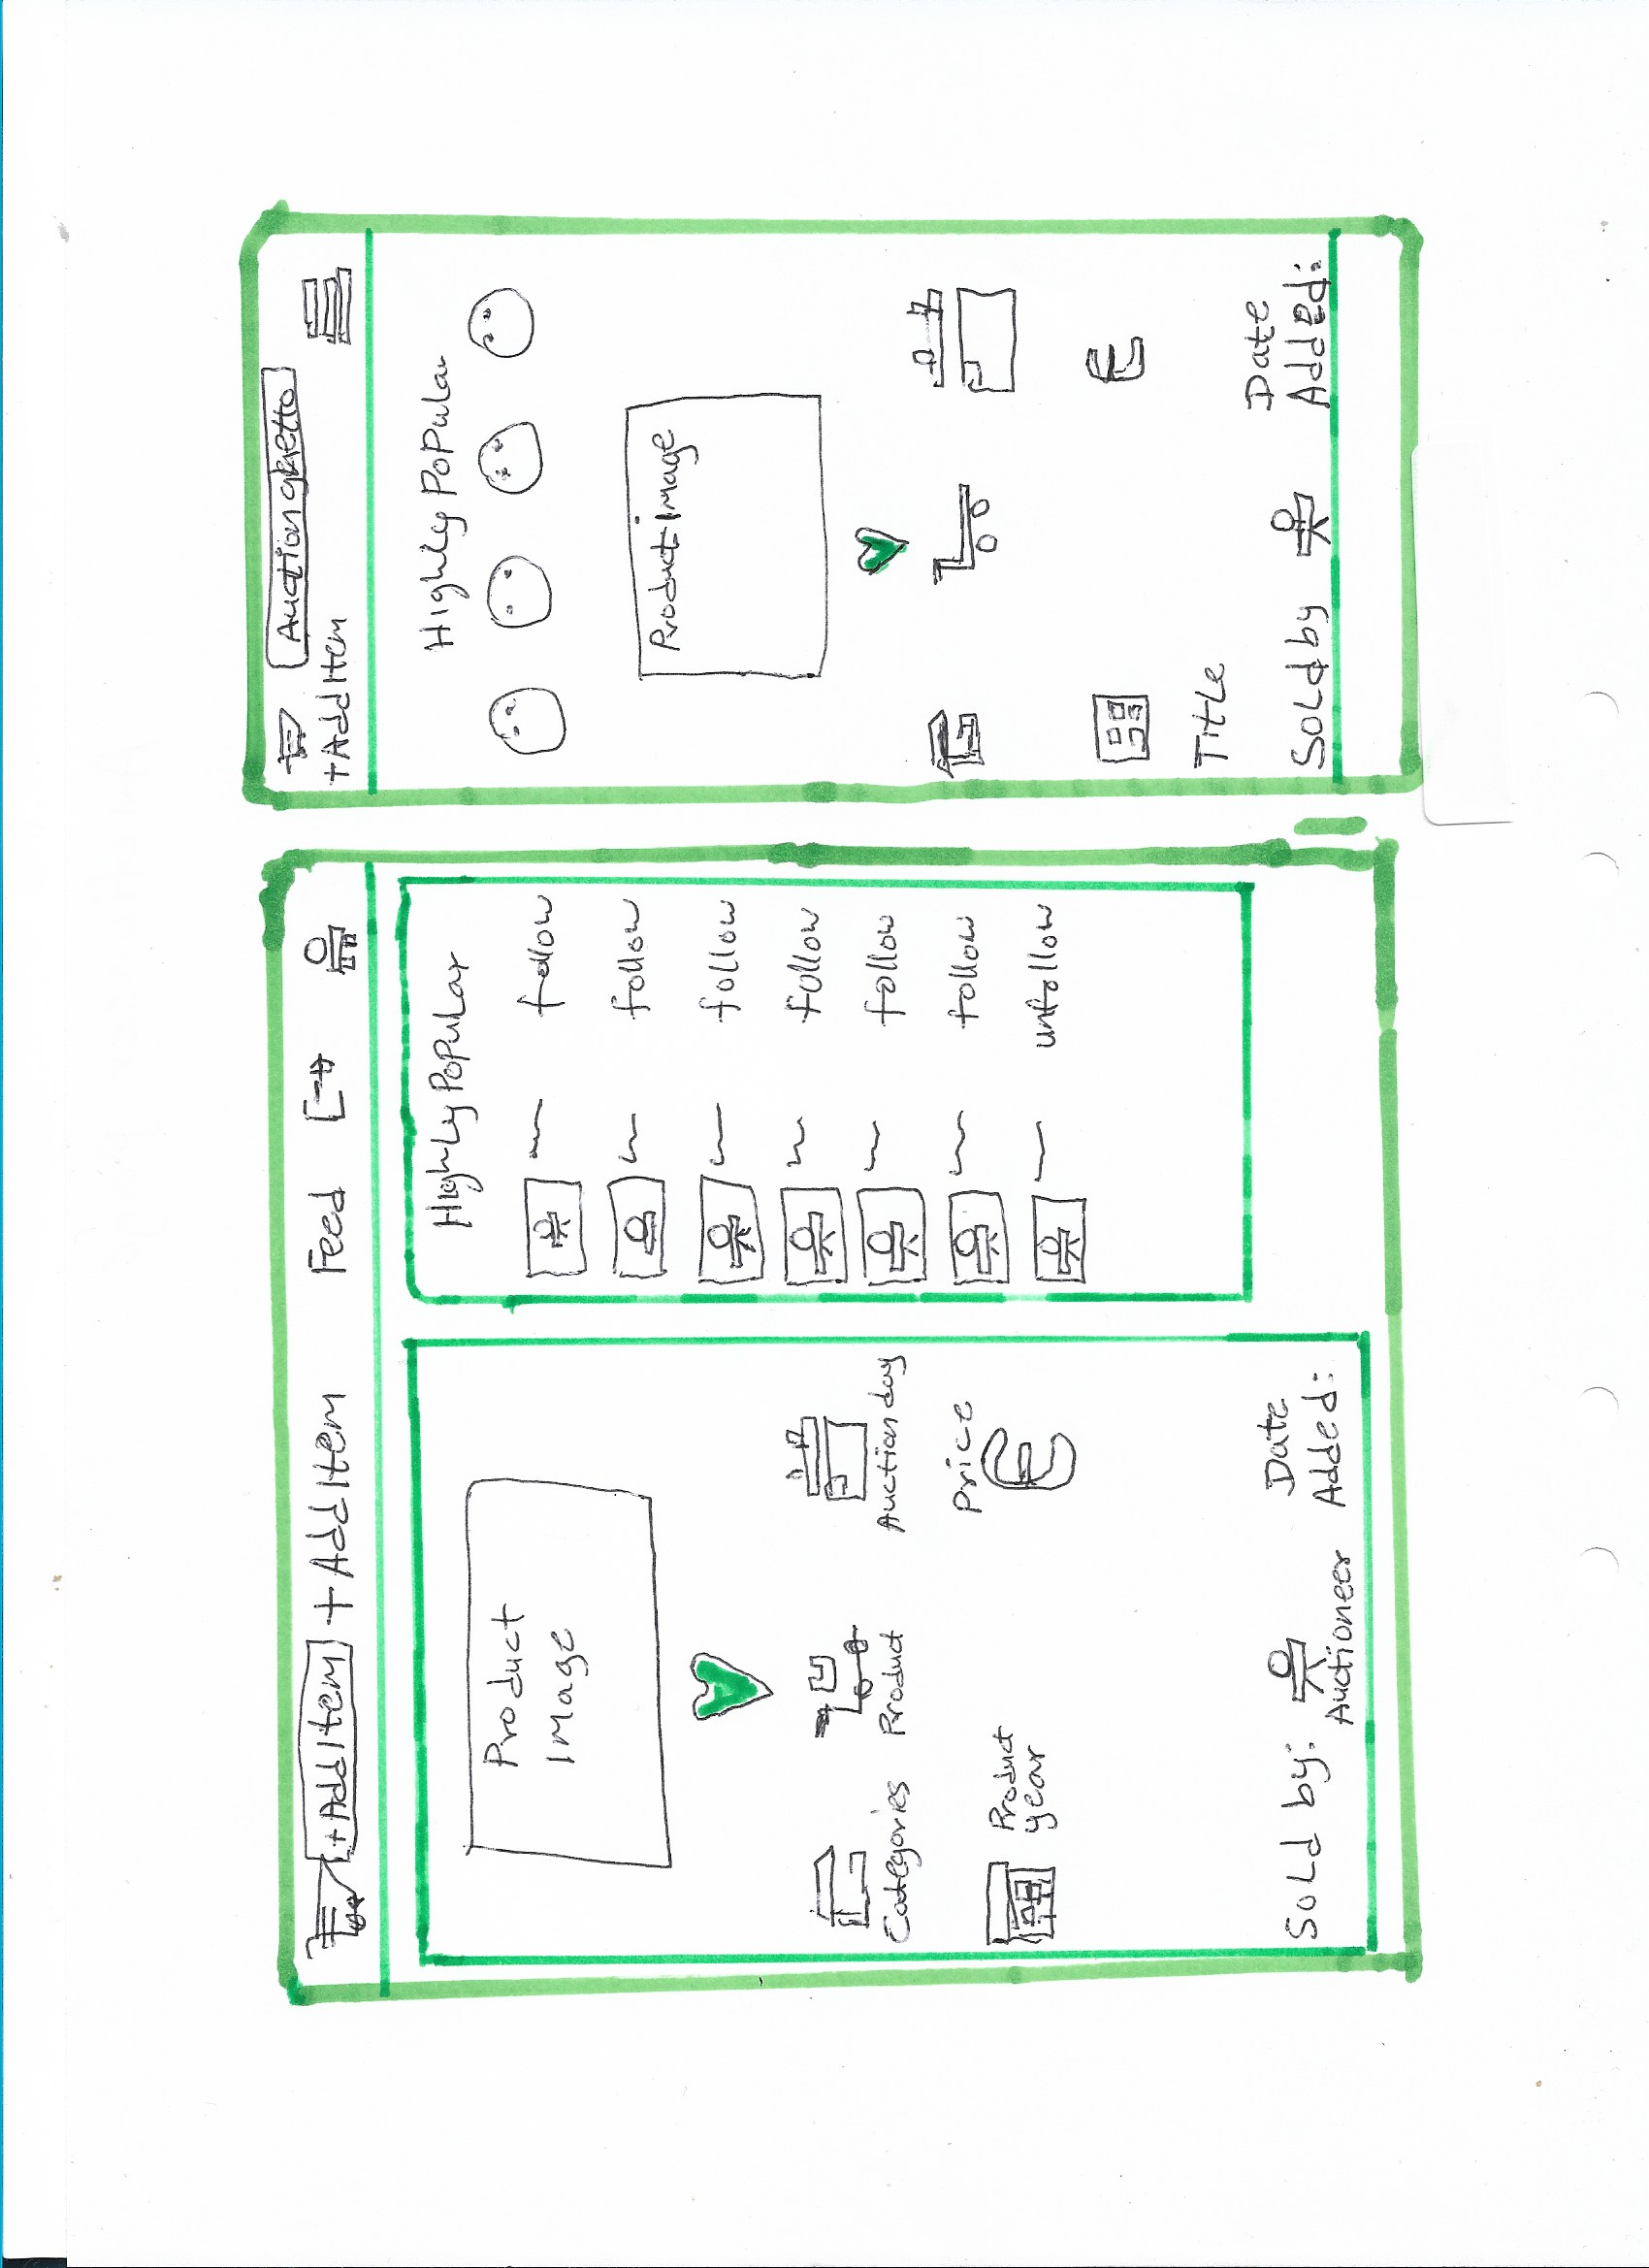 +AddItem +AddItem Feed
Product
Image
Categories Product Auction day
Product
year
Price
€
Sold by:
Auctioneer
Date
Added:
Highly Popular
follow
follow
follow
follow
follow
follow
unfollow
Auction ghetto
+AddItem
Highly Popular
Product Image
€
Title
Sold by
Date
Added: